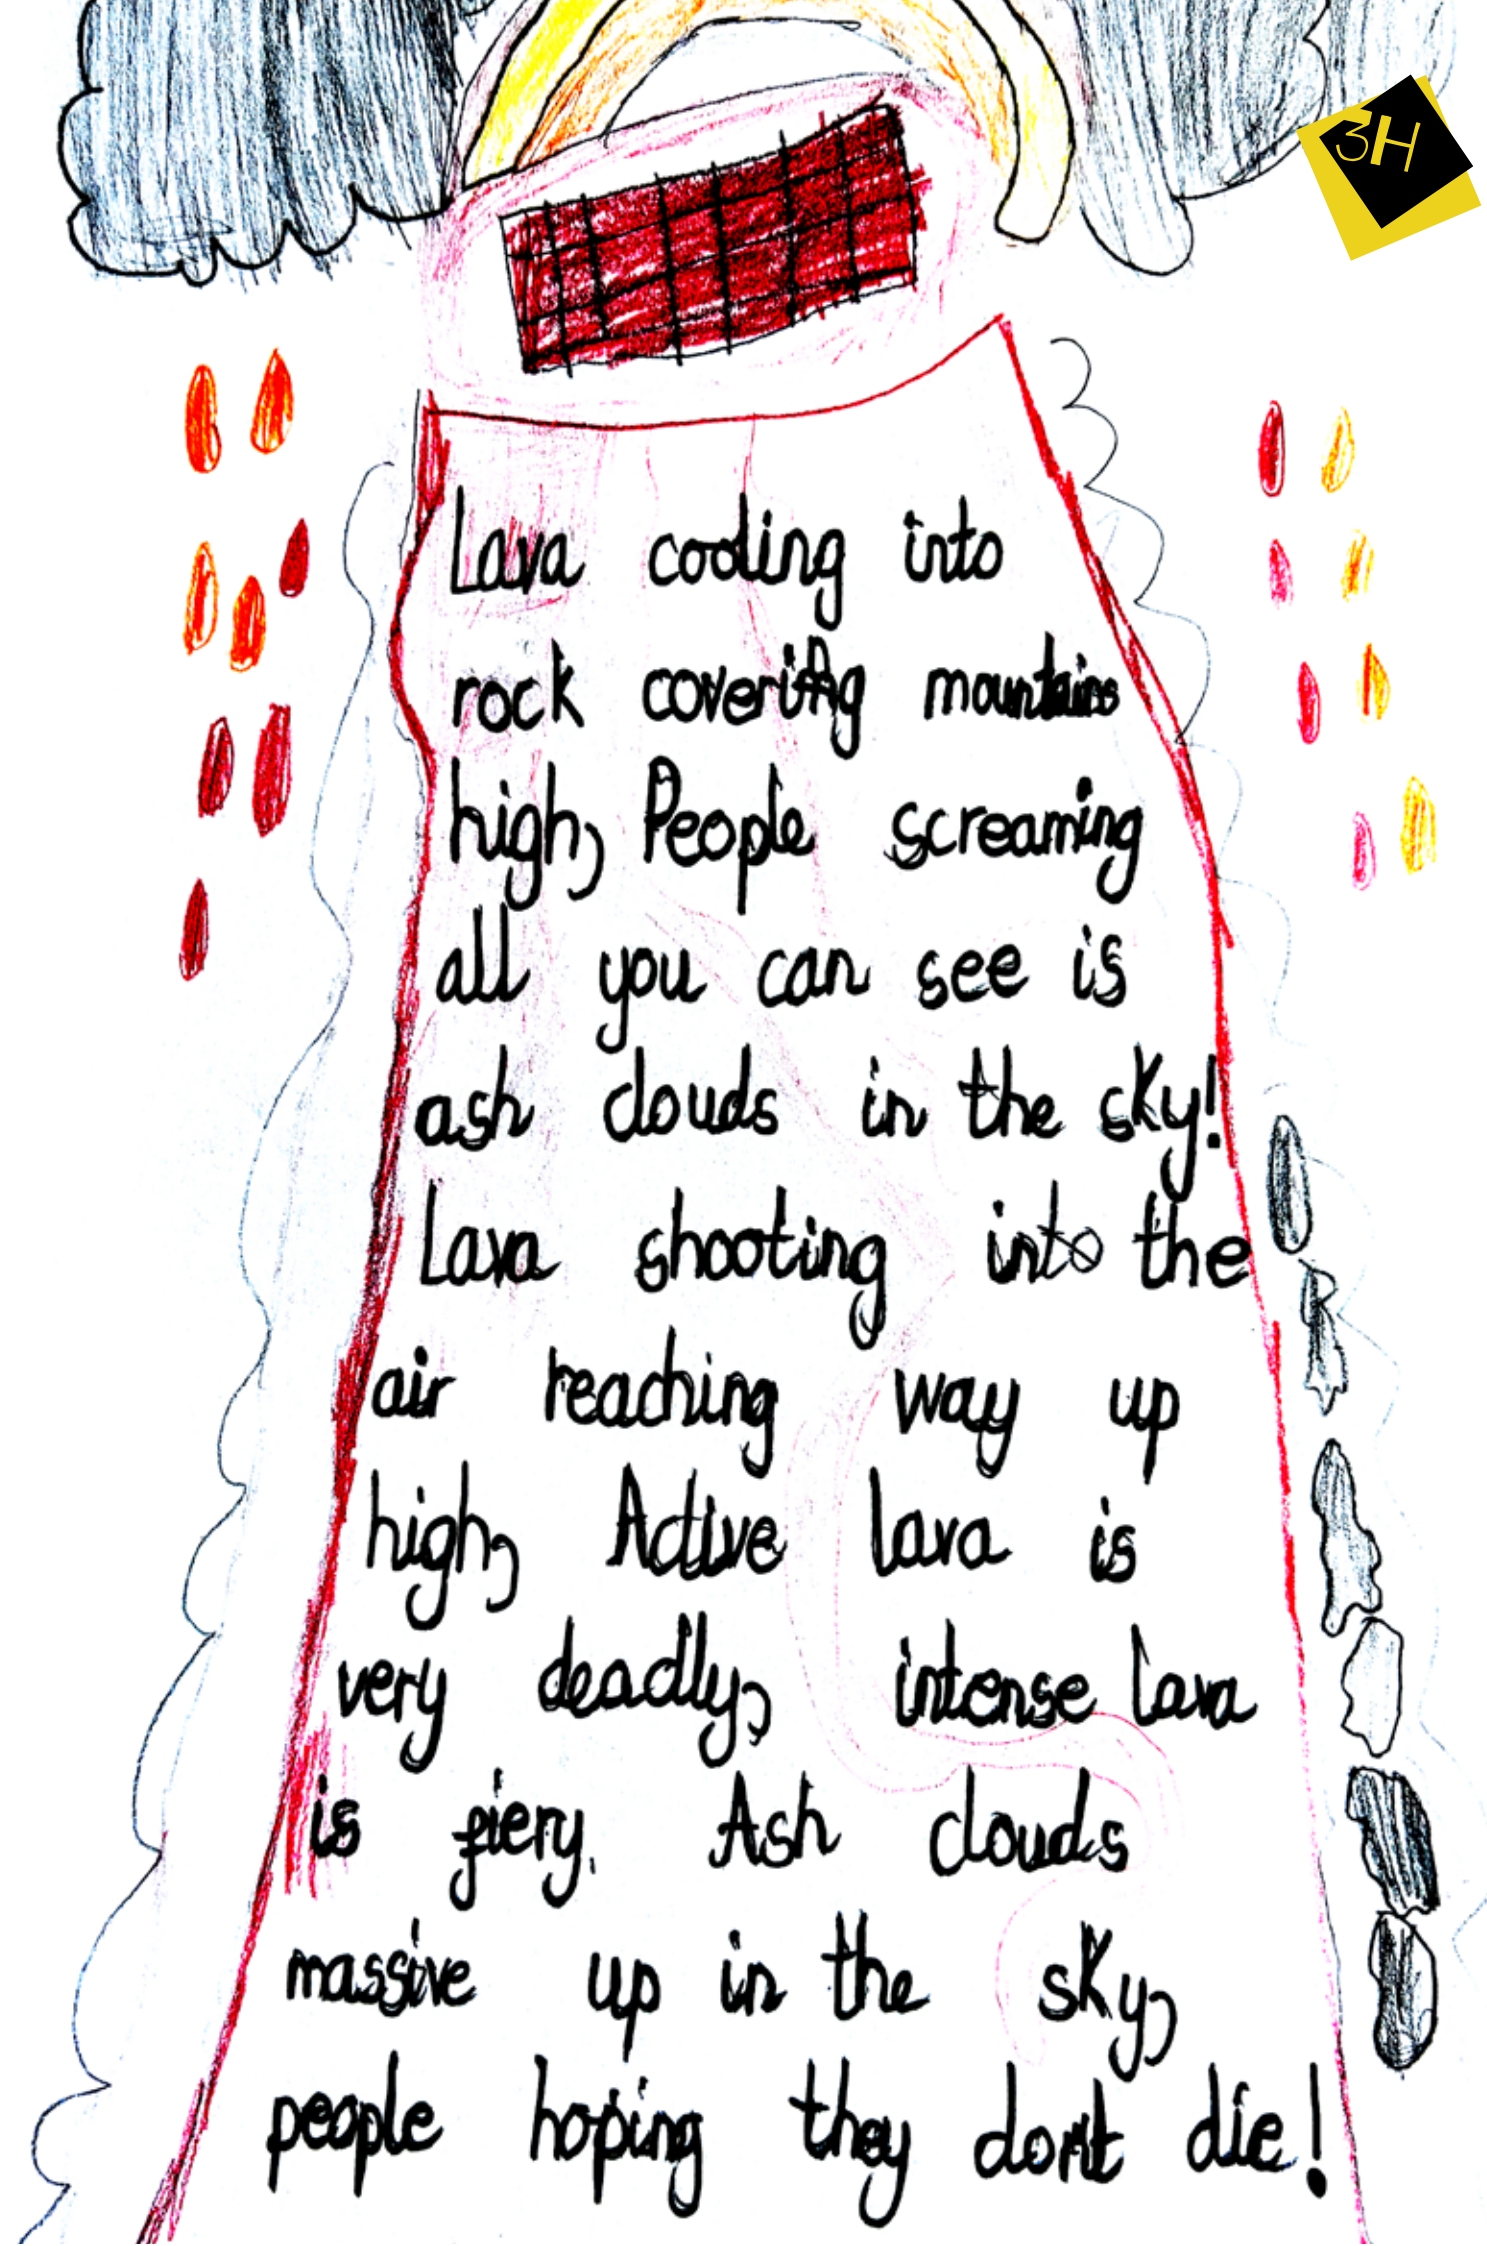 3H
Lava cooling into
rock covering mountains
high, People screaming
all you can see is
ash clouds in the sky!
Lava shooting into the
air reaching way up
high, Active lava is
very deadly, intense lava
is fiery. Ash clouds
massive up in the sky,
people hoping they don't die!